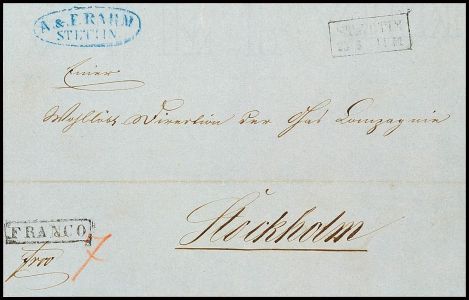 A & F. RAHM
STETTIN
STETTIN
Einer
Wohllöbl. Direction der Gas Compagnie
Stockholm
FRANCO
frco
7